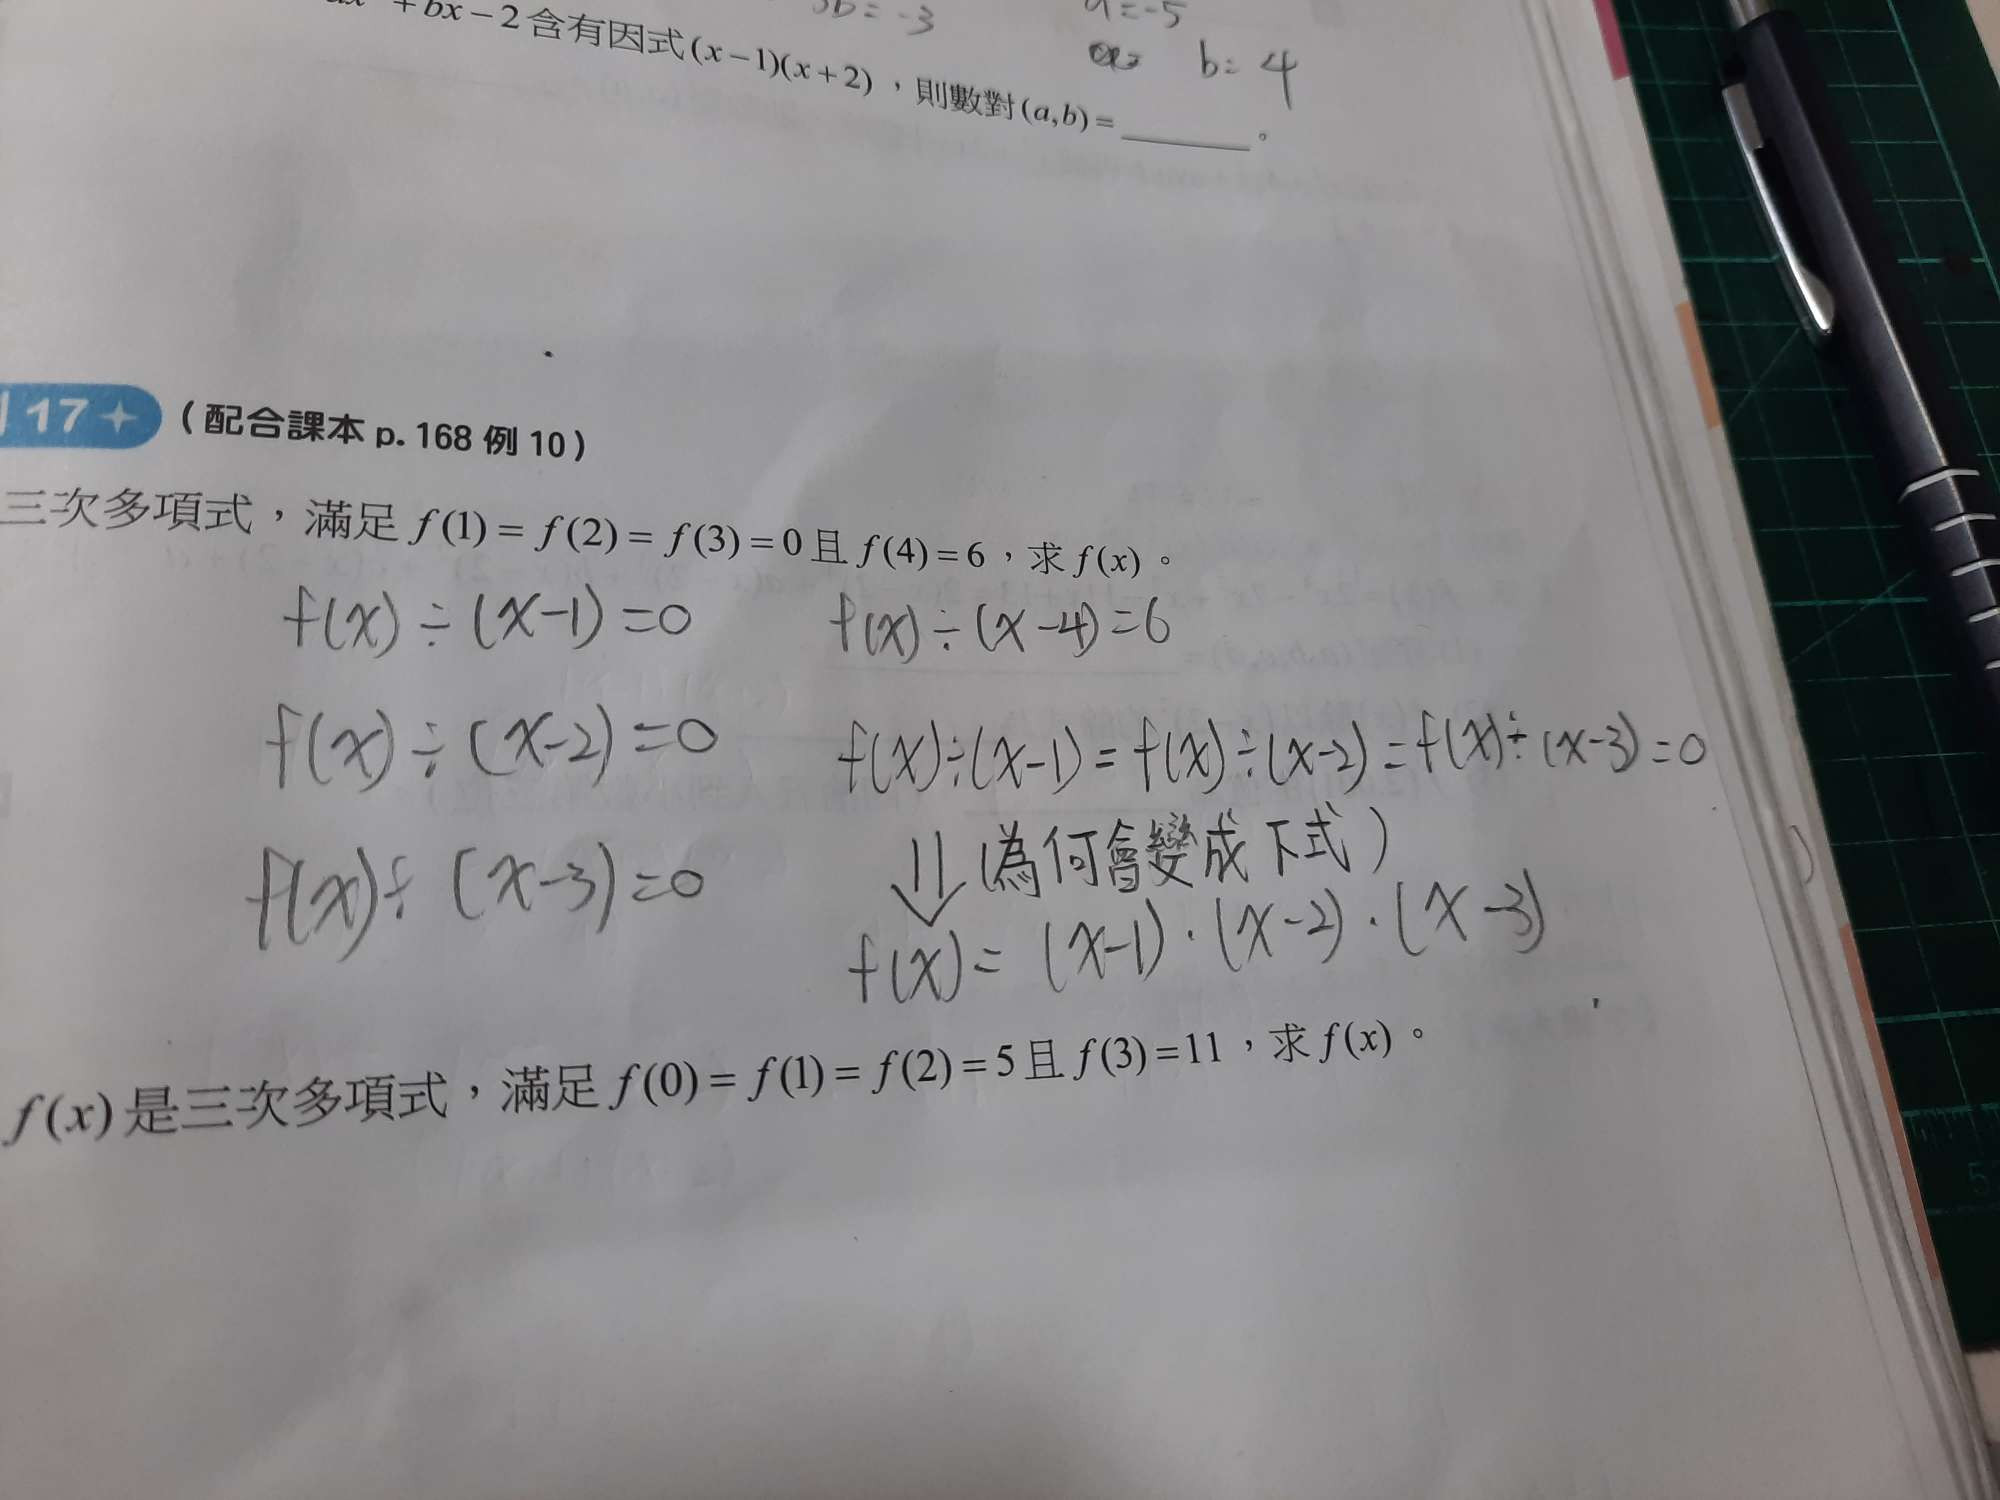 3b = -3
a = -5
+ bx - 2 含有因式 (x-1)(x+2),則數對 (a,b) = ______。
b = 4
17 (配合課本 p. 168 例 10)
三次多項式,滿足 f(1) = f(2) = f(3) = 0 且 f(4) = 6,求 f(x)。
f(x) ÷ (x-1) = 0
f(x) ÷ (x-4) = 6
f(x) ÷ (x-2) = 0
f(x) ÷ (x-1) = f(x) ÷ (x-2) = f(x) ÷ (x-3) = 0
⇓ (為何會變成下式)
f(x) ÷ (x-3) = 0
f(x) = (x-1)·(x-2)·(x-3)
f(x) 是三次多項式,滿足 f(0) = f(1) = f(2) = 5 且 f(3) = 11,求 f(x)。